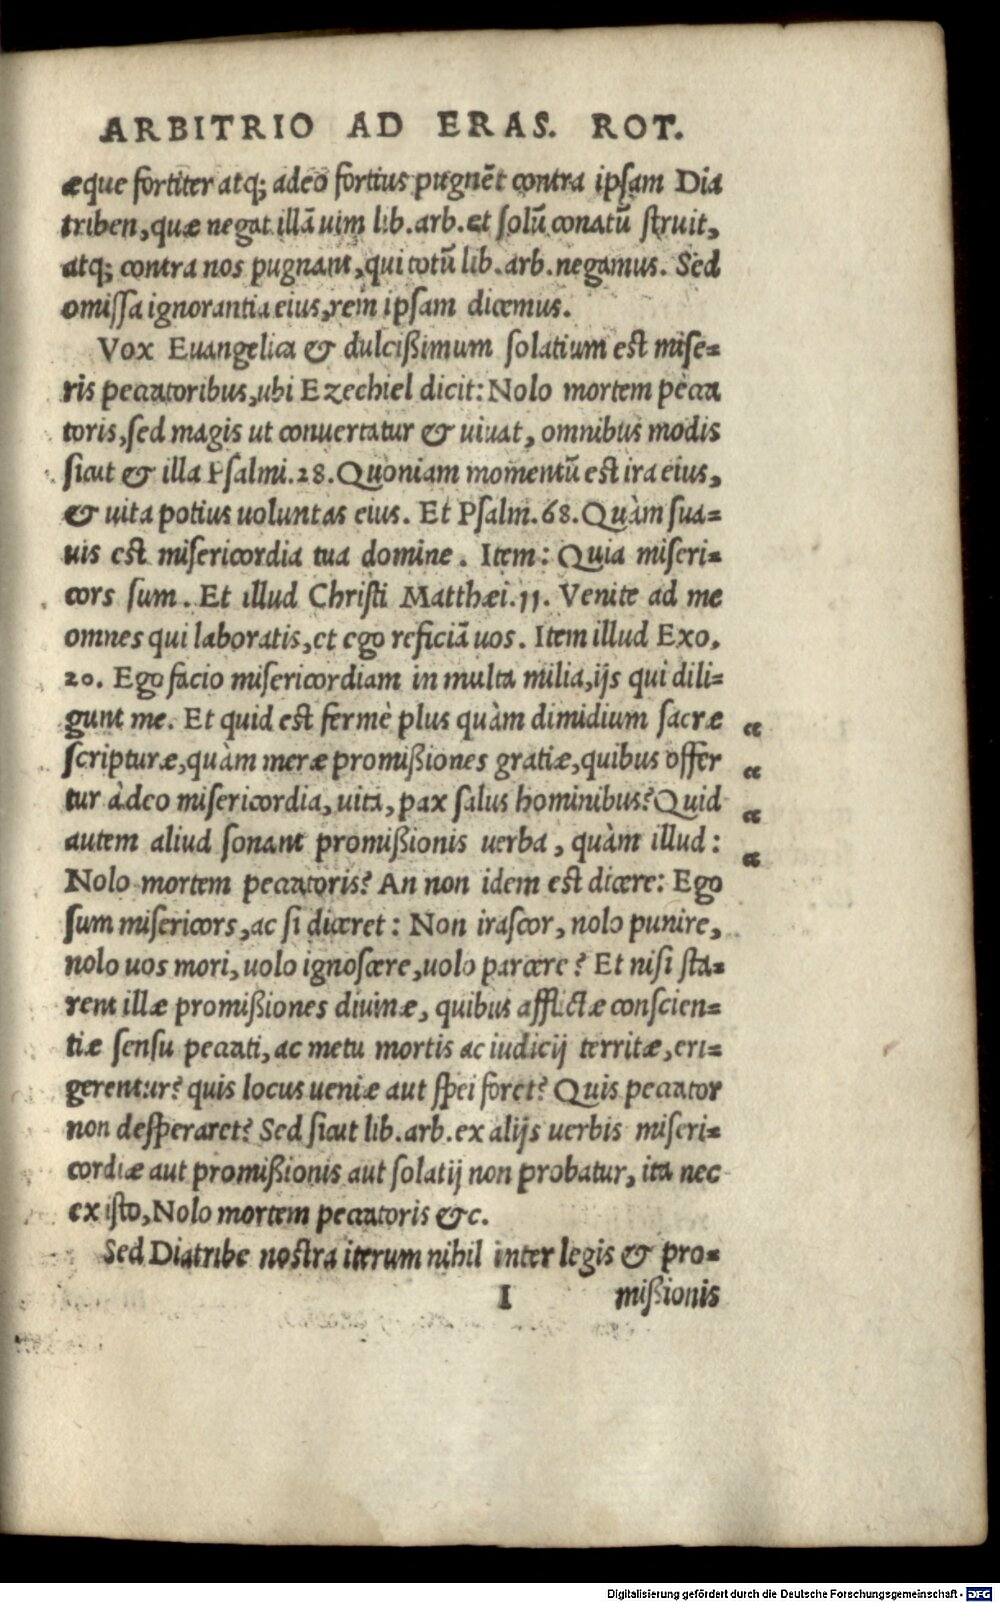 ARBITRIO AD ERAS. ROT.
æque fortiter atq; adeo fortius pugnẽt contra ipsam Dia
triben, quæ negat illã uim lib. arb. et solũ conatũ struit,
atq; contra nos pugnant, qui totũ lib. arb. negamus. Sed
omissa ignorantia eius, rem ipsam dicemus.
Vox Euangelica & dulcißimum solatium est mise=
ris peccatoribus, ubi Ezechiel dicit: Nolo mortem pecca
toris, sed magis ut conuertatur & uiuat, omnibus modis
sicut & illa Psalmi. 28. Quoniam momentũ est ira eius,
& uita potius uoluntas eius. Et Psalm. 68. Quàm sua=
uis est misericordia tua domine. Item: Quia miseri=
cors sum. Et illud Christi Matthæi. 11. Venite ad me
omnes qui laboratis, et ego reficiã uos. Item illud Exo.
20. Ego facio misericordiam in multa milia, ijs qui dili=
gunt me. Et quid est fermè plus quàm dimidium sacræ "
scripturæ, quàm meræ promißiones gratiæ, quibus offer "
tur àdeo misericordia, uita, pax salus hominibus? Quid "
autem aliud sonant promißionis uerba, quàm illud: "
Nolo mortem peccatoris? An non idem est dicere: Ego
sum misericors, ac si diceret: Non irascor, nolo punire,
nolo uos mori, uolo ignoscere, uolo parcere? Et nisi sta=
rent illæ promißiones diuinæ, quibus afflictæ conscien=
tiæ sensu peccati, ac metu mortis ac iudicij territæ, eri=
gerentur? quis locus ueniæ aut spei foret? Quis peccator
non desperaret? Sed sicut lib. arb. ex alijs uerbis miseri=
cordiæ aut promißionis aut solatij non probatur, ita nec
ex isto, Nolo mortem peccatoris &c.
Sed Diatribe nostra iterum nihil inter legis & pro=
I mißionis
Digitalisierung gefördert durch die Deutsche Forschungsgemeinschaft - DFG